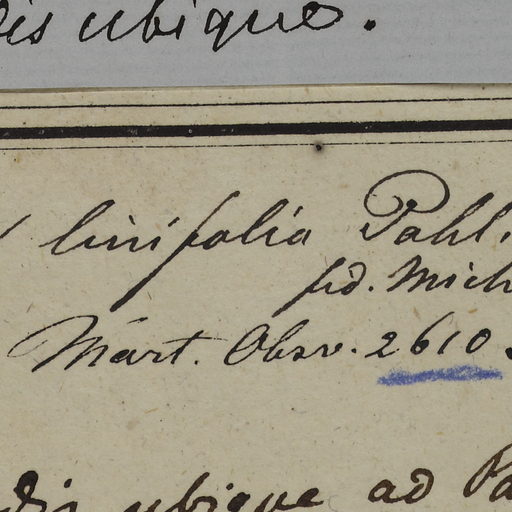 ubique.
linifolia Pohl.
fid. Mich
Mart. Obsv. 2610.
ubique ad Pa